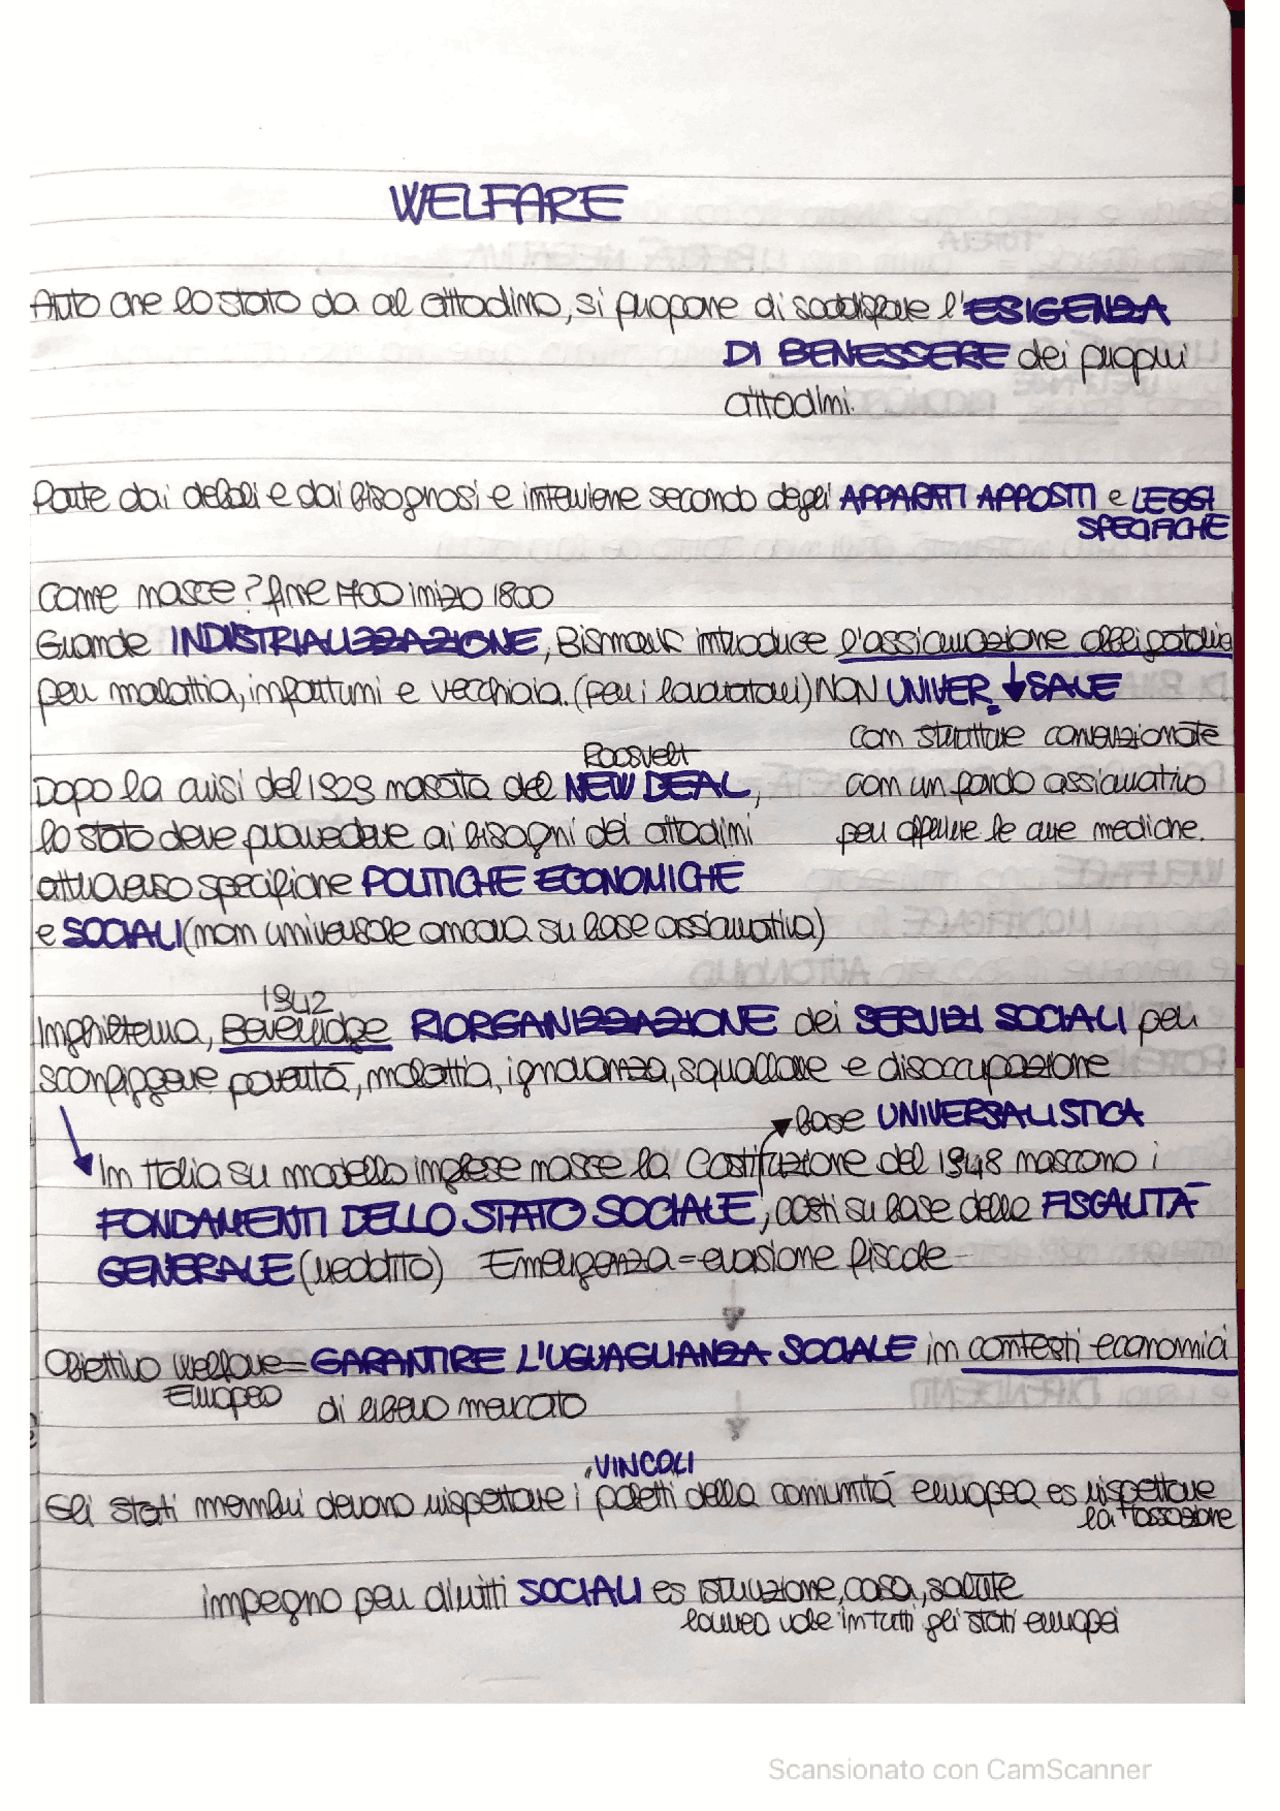 WELFARE
Aiuto che lo stato da al cittadino, si propone di soddisfare l'ESIGENZA
DI BENESSERE dei propri
cittadini.
Parte dai deboli e dai bisognosi e interviene secondo degli APPARATI APPOSITI e LEGGI
SPECIFICHE
Come nasce? fine 1700 inizio 1800
Grande INDUSTRIALIZZAZIONE, Bismark introduce l'assicurazione obbligatoria
per malattia, infortuni e vecchiaia. (per i lavoratori) NON UNIVERSALE
con strutture convenzionate
Roosvelt
Dopo la crisi del 1929 nascita del NEW DEAL,
con un fondo assicurativo
lo stato deve provvedere ai bisogni dei cittadini
per offrire le cure mediche.
attraverso specifiche POLITICHE ECONOMICHE
e SOCIALI (non universale ancora su base assicurativa)
1942
Inghilterra, Beveridge RIORGANIZZAZIONE dei SERVIZI SOCIALI per
sconfiggere povertà, malattia, ignoranza, squallore e disoccupazione
base UNIVERSALISTICA
In Italia su modello inglese nasce la Costituzione del 1948 nascono i
FONDAMENTI DELLO STATO SOCIALE, costi su base della FISCALITÀ
GENERALE (reddito) Emergenza = evasione fiscale
Obiettivo welfare = GARANTIRE L'UGUAGLIANZA SOCIALE in contesti economici
Europeo
di libero mercato
VINCOLI
Gli stati membri devono rispettare i paletti della comunità europea es rispettare
la tassazione
impegno per diritti SOCIALI es istruzione, casa, salute
laurea vale in tutti gli stati europei
Scansionato con CamScanner